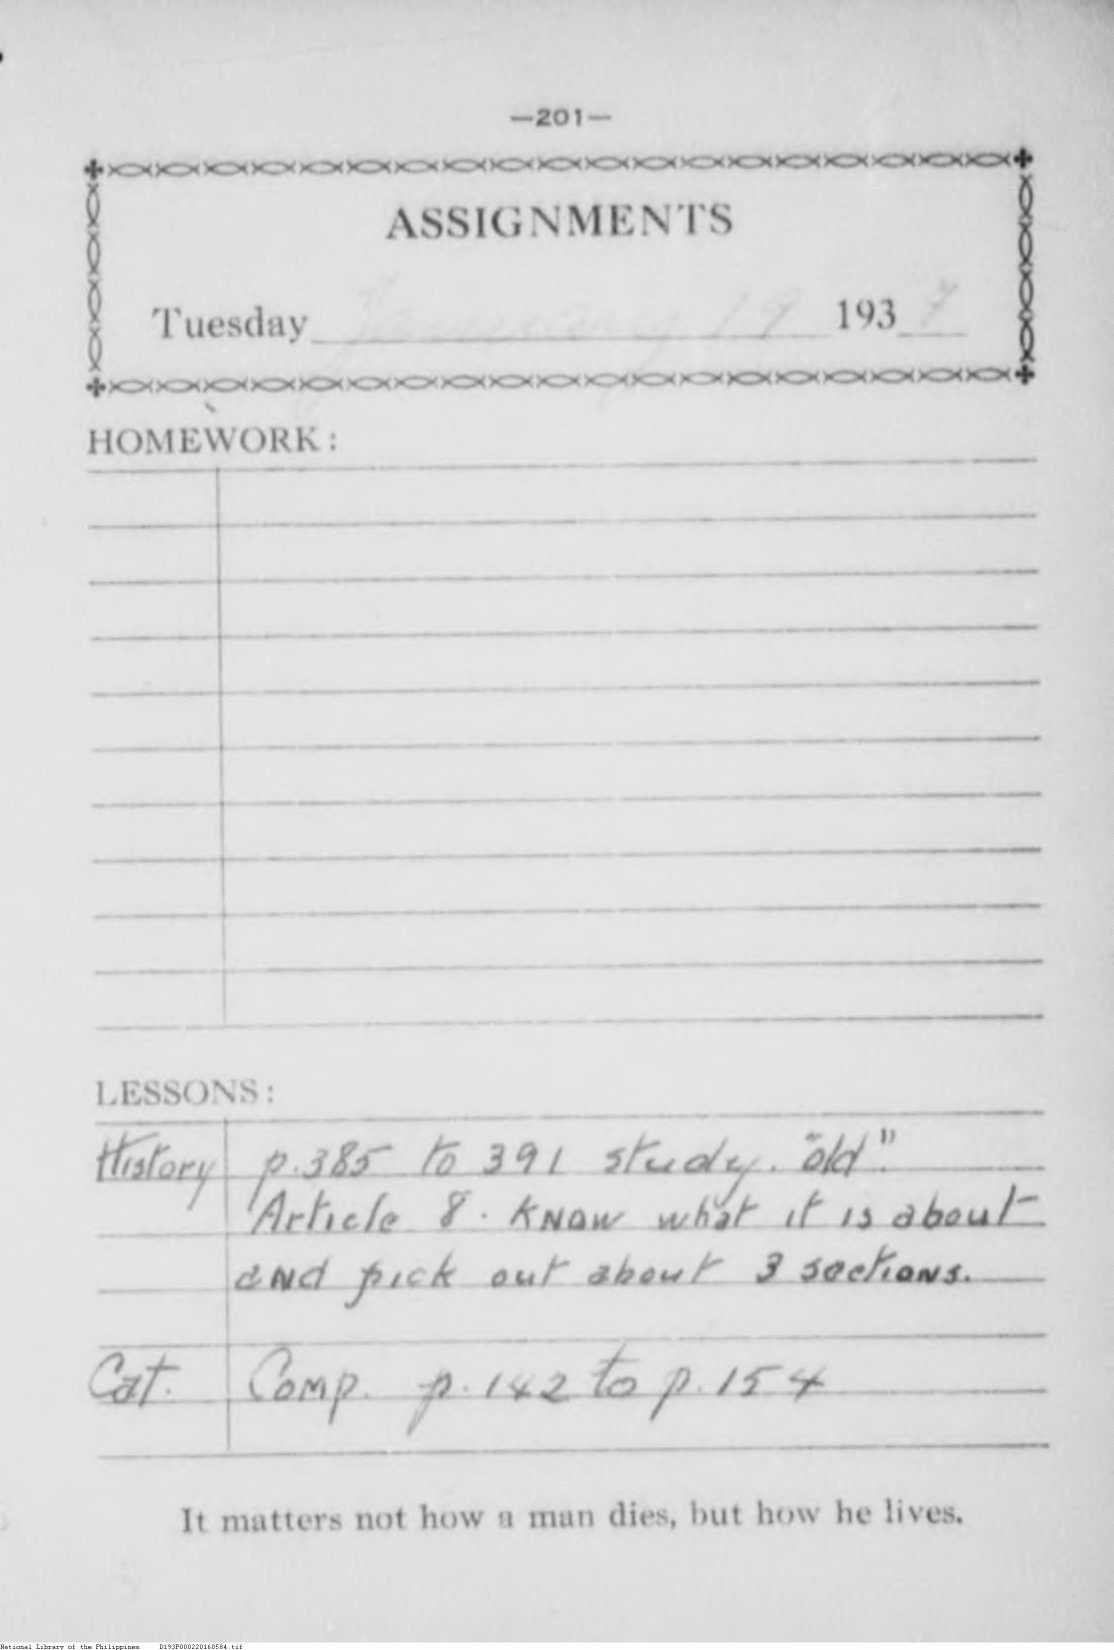 —201—
ASSIGNMENTS
Tuesday January 19 1937
HOMEWORK:
LESSONS:
History p. 385 to 391 study. "old".
Article 8. Know what it is about
and pick out about 3 sections.
Cat. Comp. p. 142 to p. 154
It matters not how a man dies, but how he lives.
National Library of the Philippines D193P000220160584.tif